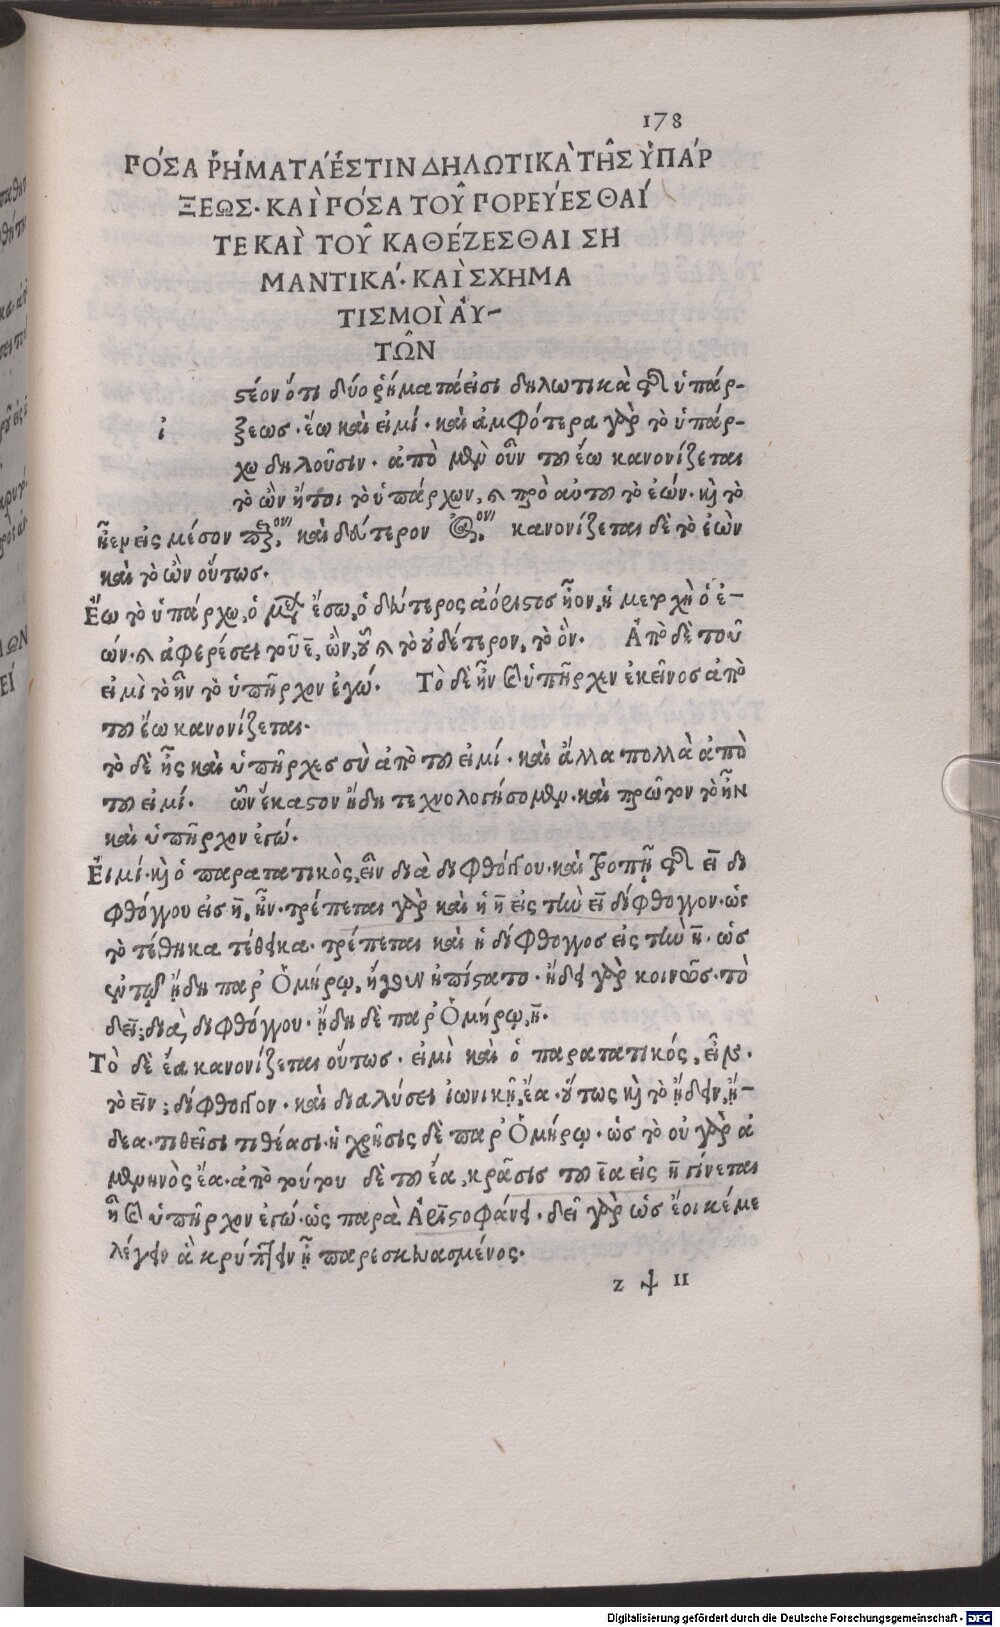 178
ΠΌΣΑ ῬΉΜΑΤΑ ἘΣΤΙΝ ΔΗΛΩΤΙΚᾺ ΤΗ͂Σ ὙΠΆΡ
ΞΕΩΣ· ΚΑῚ ΠΌΣΑ ΤΟΥ͂ ΠΟΡΕΎΕΣΘΑΊ
ΤΕ ΚΑῚ ΤΟΥ͂ ΚΑΘΈΖΕΣΘΑΙ ΣΗ
ΜΑΝΤΙΚΆ· ΚΑῚ ΣΧΗΜΑ
ΤΙΣΜΟῚ ἈΥ-
ΤΩ͂Ν
ϛέον ὅτι δύο ῥήματά εἰσι δηλωτικὰ τῆς ὑπάρ-
ἰ
ξεως· ἔω καὶ εἰμί· καὶ ἀμφότερα γὰρ τὸ ὑπάρ-
χω δηλοῦσιν· ἀπὸ μὲν οὖν τοῦ ἔω κανονίζεται
τὸ ὢν ἤτοι τὸ ὑπάρχων, καὶ πρὸ αὐτοῦ τὸ ἐών· καὶ τὸ
ἦεν εἰς μέσον καὶ δεύτερον κανονίζεται δὲ τὸ ἐὼν
καὶ τὸ ὢν οὕτως·
Ἔω τὸ ὑπάρχω, ὁ μέλλων ἔσω, ὁ δεύτερος ἀόριϛος ἦον, ἡ μετοχὴ ὁ ἐ-
ών· καὶ ἀφερέσει τοῦ ε̄, ὢν, οὗ καὶ τὸ οὐδέτερον, τὸ ὄν· Ἀπὸ δὲ τοῦ
εἰμὶ τὸ ἦν τὸ ὑπῆρχον ἐγώ· Τὸ δὲ ἦν καὶ ὑπῆρχεν ἐκεῖνος ἀπὸ
τοῦ ἔω κανονίζεται·
τὸ δὲ ἦς καὶ ὑπῆρχες σὺ ἀπὸ τοῦ εἰμί· καὶ ἄλλα πολλὰ ἀπὸ
τοῦ εἰμί· ὧν ἕκαϛον ἤδη τεχνολογήσομεν· καὶ πρῶτον τὸ ἦν
καὶ ὑπῆρχον ἐγώ·
Εἰμί· καὶ ὁ παρατατικὸς, εἶν διὰ διφθόγγου· καὶ τροπῇ τῆς ει̅ δι
φθόγγου εἰς η̄, ἦν· τρέπεται γὰρ καὶ ἡ η̄ εἰς τὴν ει̅ δίφθογγον· ὡς
τὸ τέθηκα τέθεικα· τρέπεται καὶ ἡ δίφθογγος εἰς τὴν η̄· ὡς
ἐν τῷ ᾔδη παρ' Ὁμήρῳ, ἤγουν ἠπίϛατο· ᾔδει γὰρ κοινῶς· τὸ
δει̅; διὰ διφθόγγου· ᾔδη δὲ παρ' Ὁμήρῳ, η̄·
Τὸ δὲ ἔα κανονίζεται οὕτως· εἰμὶ καὶ ὁ παρατατικός, εἶν·
τὸ ει̅ν; δίφθογγον· καὶ διαλύσει ἰωνικῇ, ἔα· οὕτως καὶ τὸ ᾔδειν, ᾔ-
δεα· τιθεῖσι τιθέασι· ἡ χρῆσις δὲ παρ' Ὁμήρῳ· ὡς τὸ οὐ γὰρ ἀ
μενηνὸς ἔα· ἀπὸ τούτου δὲ τοῦ ἔα, κρᾶσις τοῦ ε̄α εἰς η̄ γίνεται
ἦ καὶ ὑπῆρχον ἐγώ· ὡς παρὰ Ἀριϛοφάνει· δεῖ γὰρ ὡς ἔοικέ με
λέγειν ἃ κρύπτειν ἦ παρεσκευασμένος·
z ⁜ II
Digitalisierung gefördert durch die Deutsche Forschungsgemeinschaft - DFG